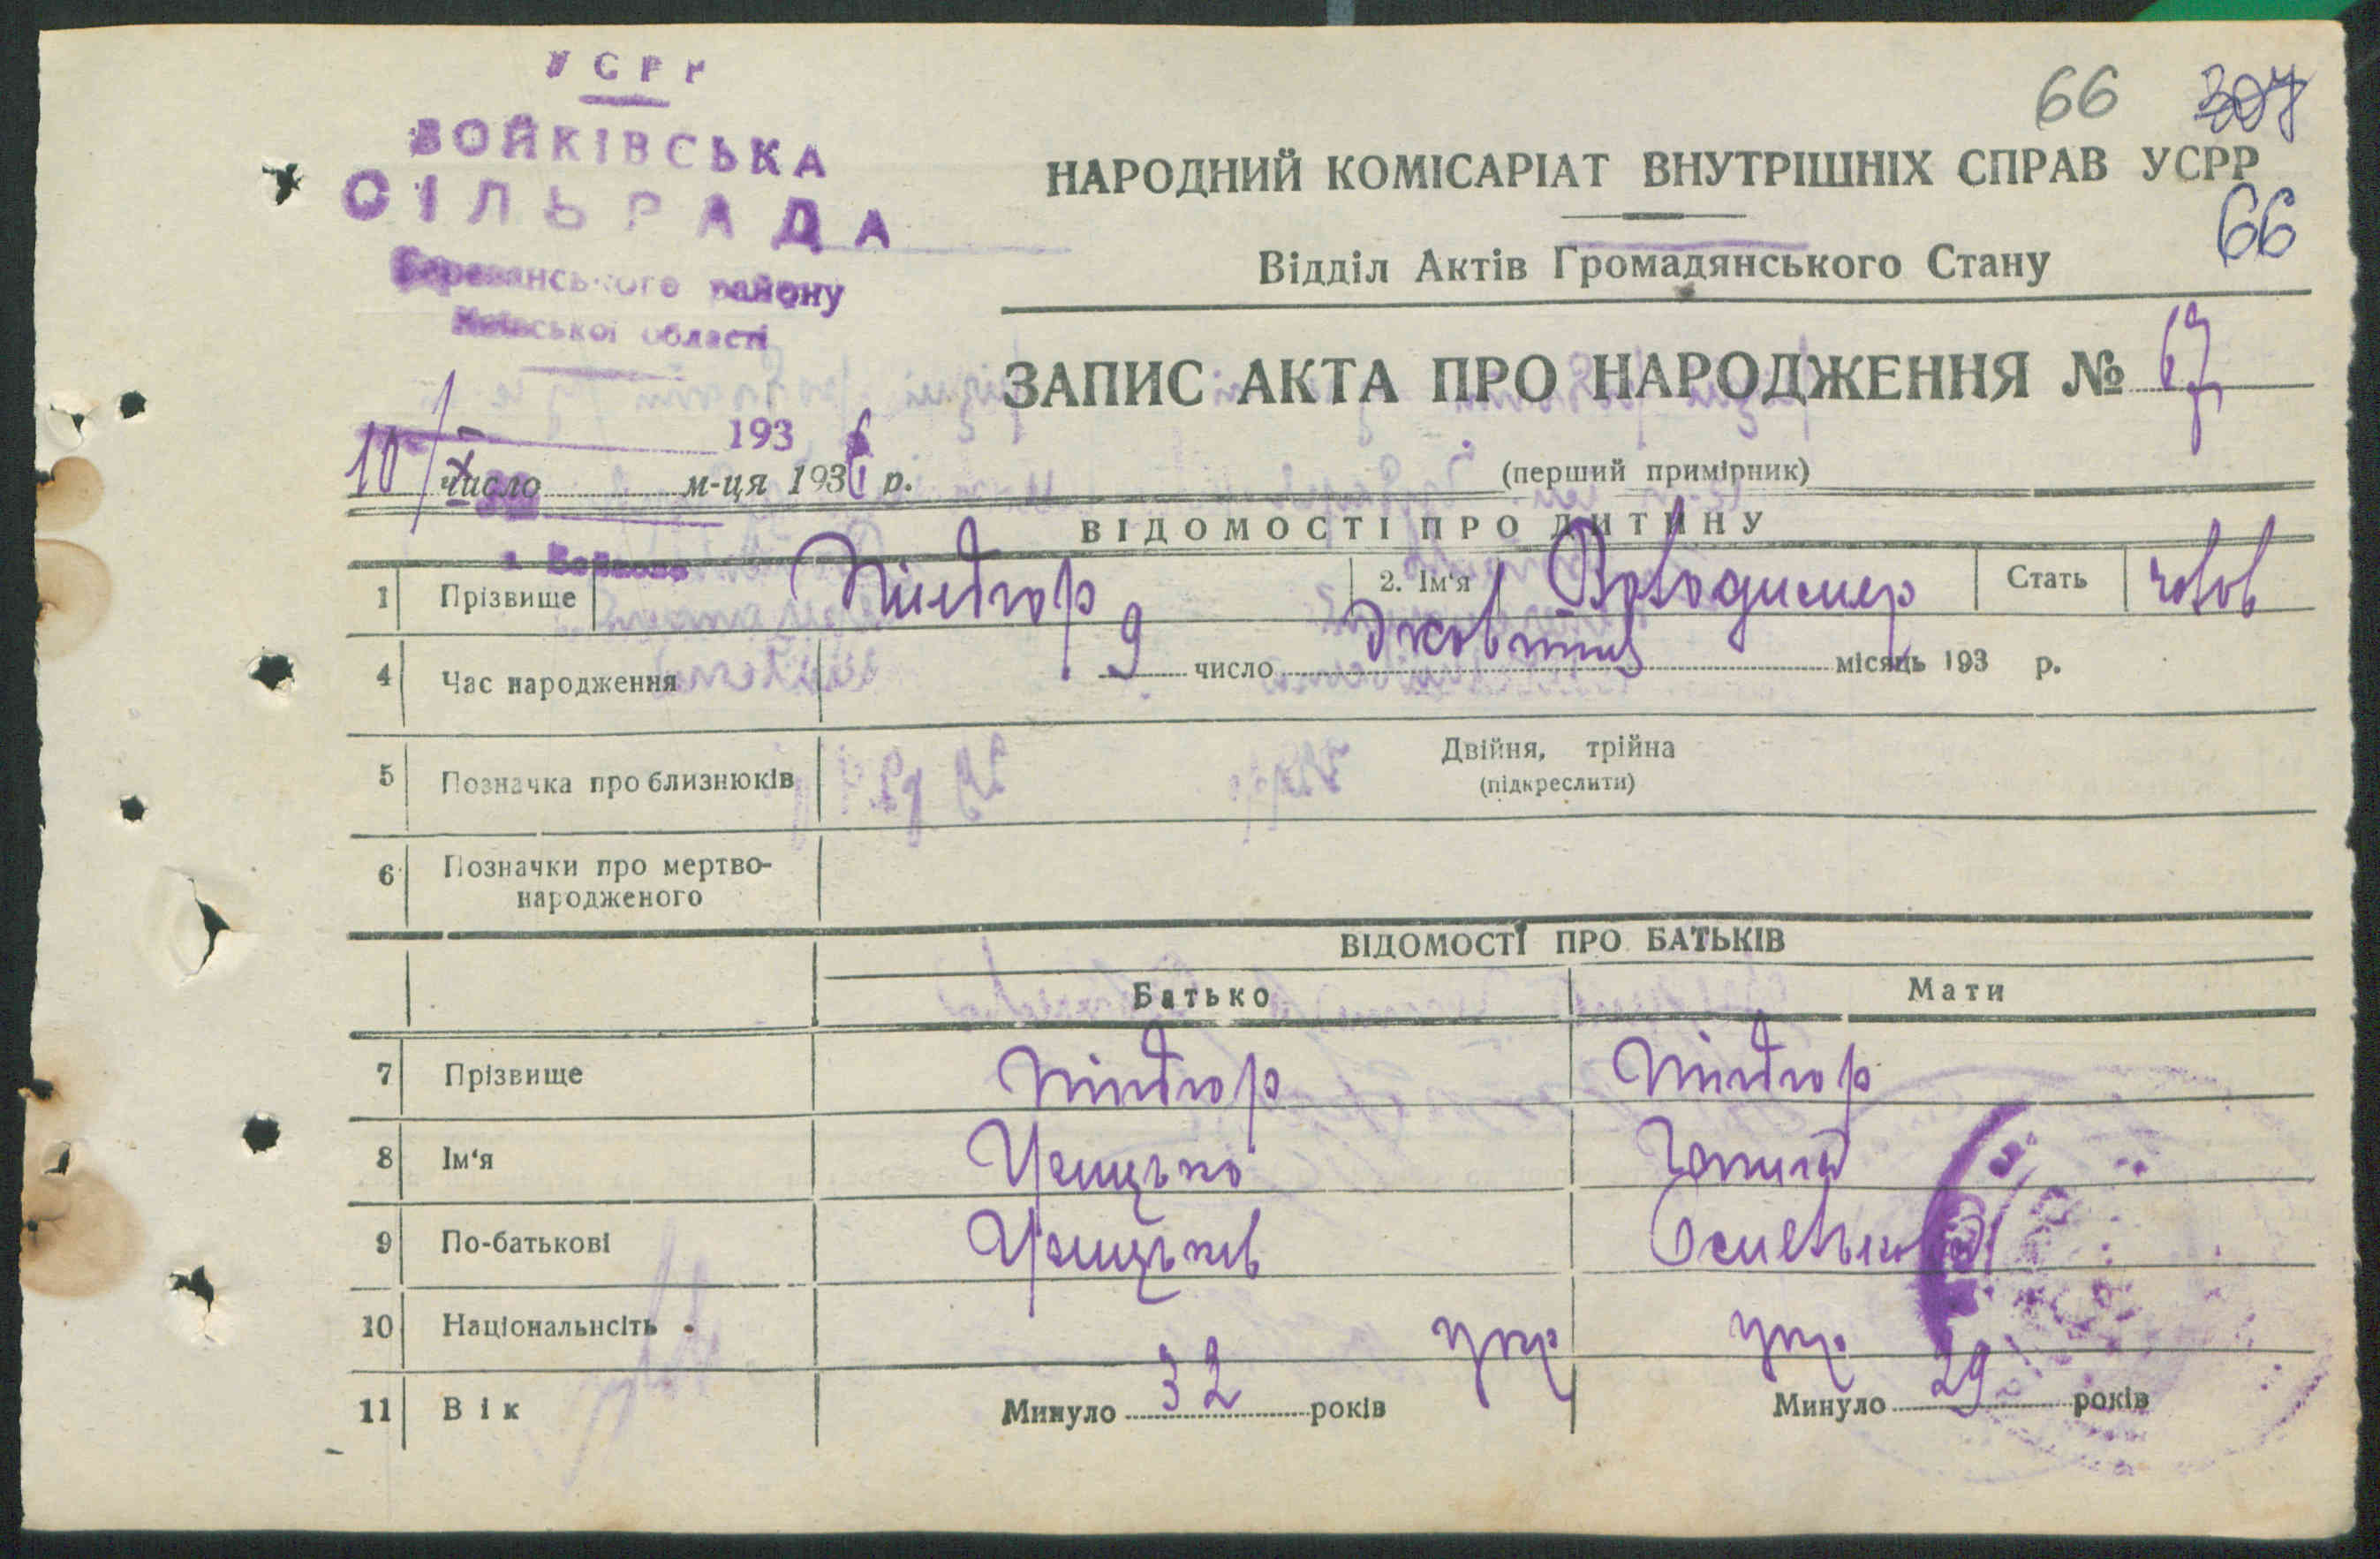 УСРР
ВОЙКІВСЬКА
СІЛЬРАДА
Березанського району
Київської області
66 307
НАРОДНИЙ КОМІСАРІАТ ВНУТРІШНІХ СПРАВ УСРР
66
Відділ Актів Громадянського Стану
ЗАПИС АКТА ПРО НАРОДЖЕННЯ № 67
193
10/X число м-ця 1936 р.
(перший примірник)
ВІДОМОСТІ ПРО ДИТИНУ
1 Прізвище 2. Ім'я Володимер Стать чолов
4 Час народження 9 число Жовтня місяць 193 р.
5 Позначка про близнюків Двійня, трійна
(підкреслити)
6 Позначки про мертво-
народженого
ВІДОМОСТІ ПРО БАТЬКІВ
Батько Мати
7 Прізвище
8 Ім'я
9 По-батькові
10 Національнсіть укр укр.
11 Вік Минуло 32 років Минуло 29 років